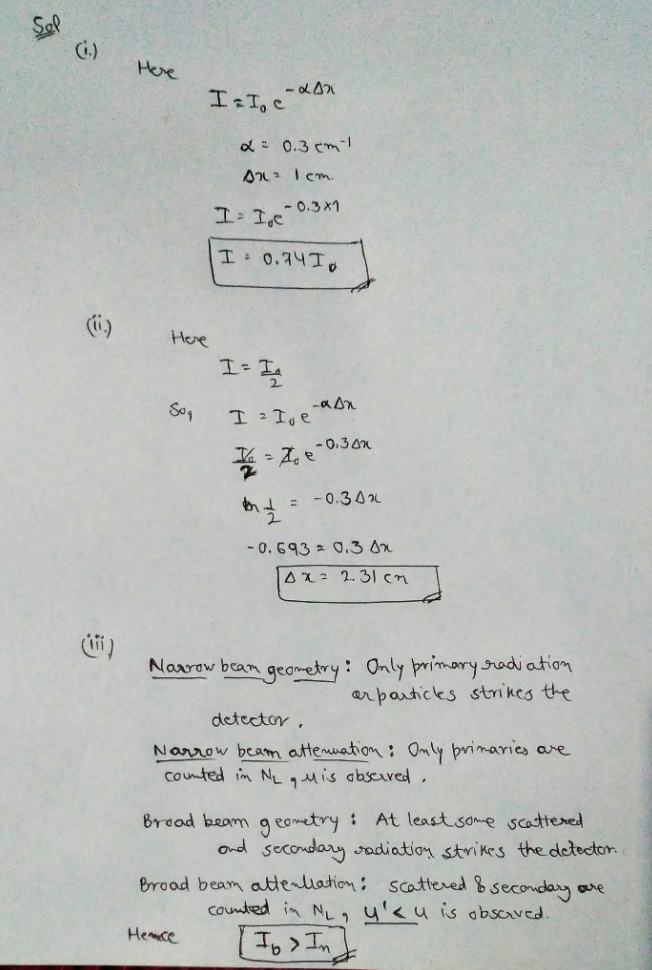 Sol
(i.)
Here
I = I₀ e^{-αΔx}
α = 0.3 cm⁻¹
Δx = 1 cm.
I = I₀e^{-0.3×1}
I = 0.74 I₀
(ii.)
Here
I = I₀/2
So, I = I₀ e^{-αΔx}
I₀/2 = I₀ e^{-0.3Δx}
ln 1/2 = -0.3Δx
-0.693 = 0.3 Δx
Δx = 2.31 cm
(iii)
Narrow beam geometry : Only primary radiation
or particles strikes the
detector.
Narrow beam attenuation : Only primaries are
counted in N_L, μ is observed.
Broad beam geometry : At least some scattered
and secondary radiation strikes the detector.
Broad beam attenuation : scattered & secondary are
counted in N_L, μ' < μ is observed.
Hence I_b > I_n